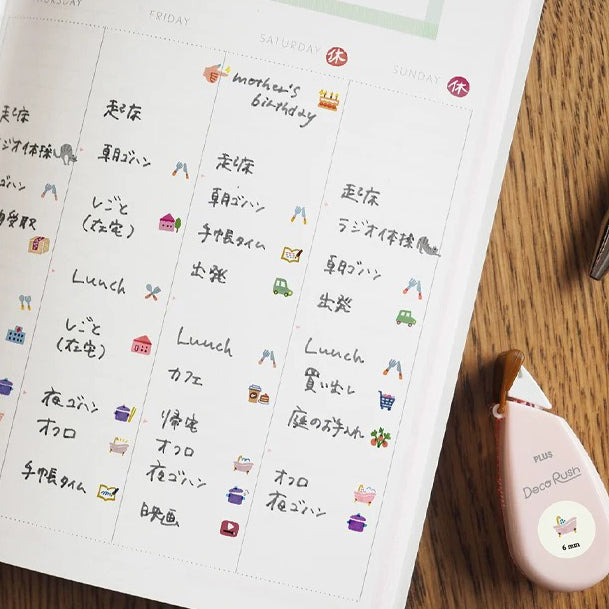 FRIDAY
SATURDAY 休
SUNDAY 休
起床
ラジオ体操
ゴハン
受取
起床
朝ゴハン
しごと
(在宅)
Lunch
しごと
(在宅)
夜ゴハン
オフロ
手帳タイム
mother's
birthday
起床
朝ゴハン
手帳タイム
出発
Lunch
カフェ
帰宅
オフロ
夜ゴハン
映画
起床
ラジオ体操
朝ゴハン
出発
Lunch
買い出し
庭のお手入れ
オフロ
夜ゴハン
PLUS
Deco Rush
6 mm